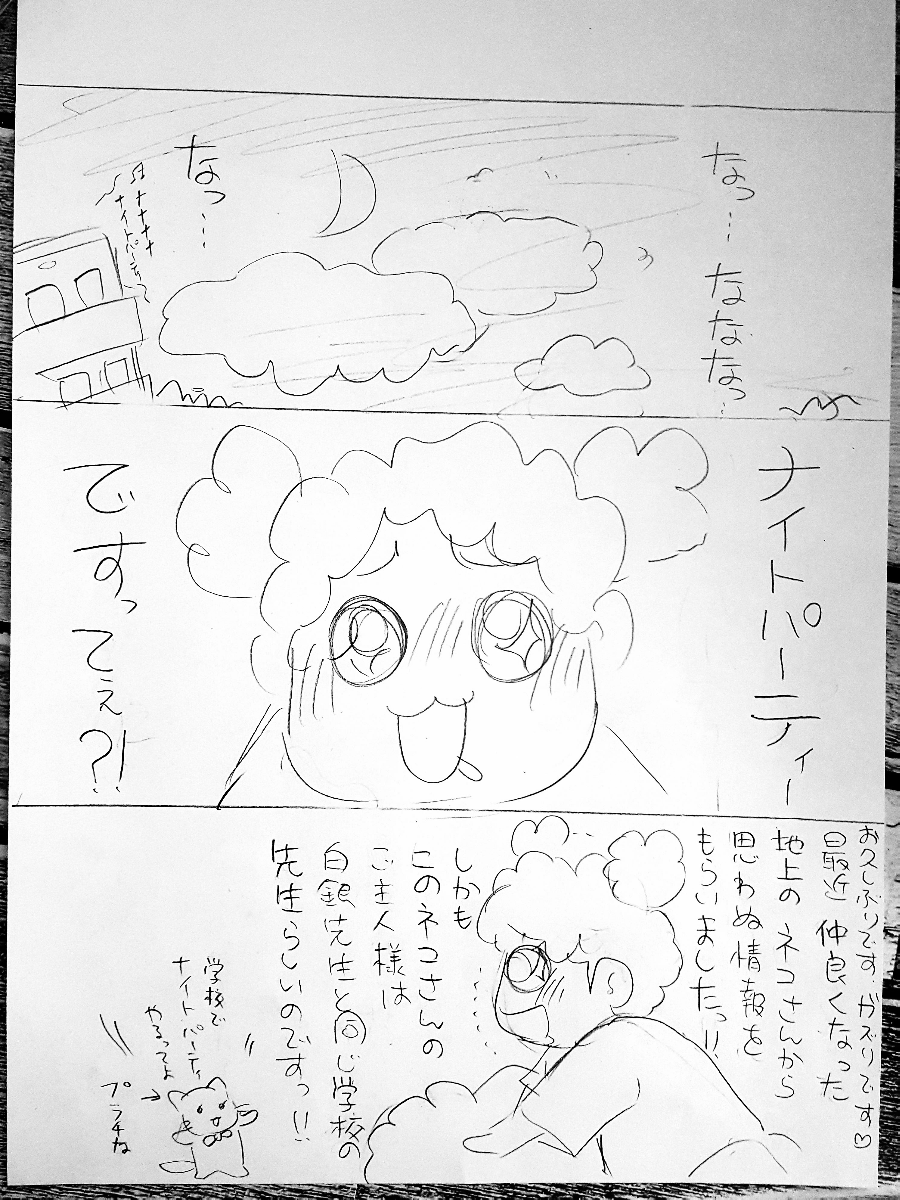 なっ…
なななっ…
なっ…
♪ナナナナ
ナイトパーティ〜
ナイトパーティー
ですってぇ?!
お久しぶりです ガズリです♡
最近 仲良くなった
地上の ネコさんから
思わぬ情報を
もらいましたっ!!
しかも
このネコさんの
ご主人様は
白銀先生と同じ学校の
先生らしいのですっ!!
学校で
ナイトパーティ
やるってよ
プラチナ